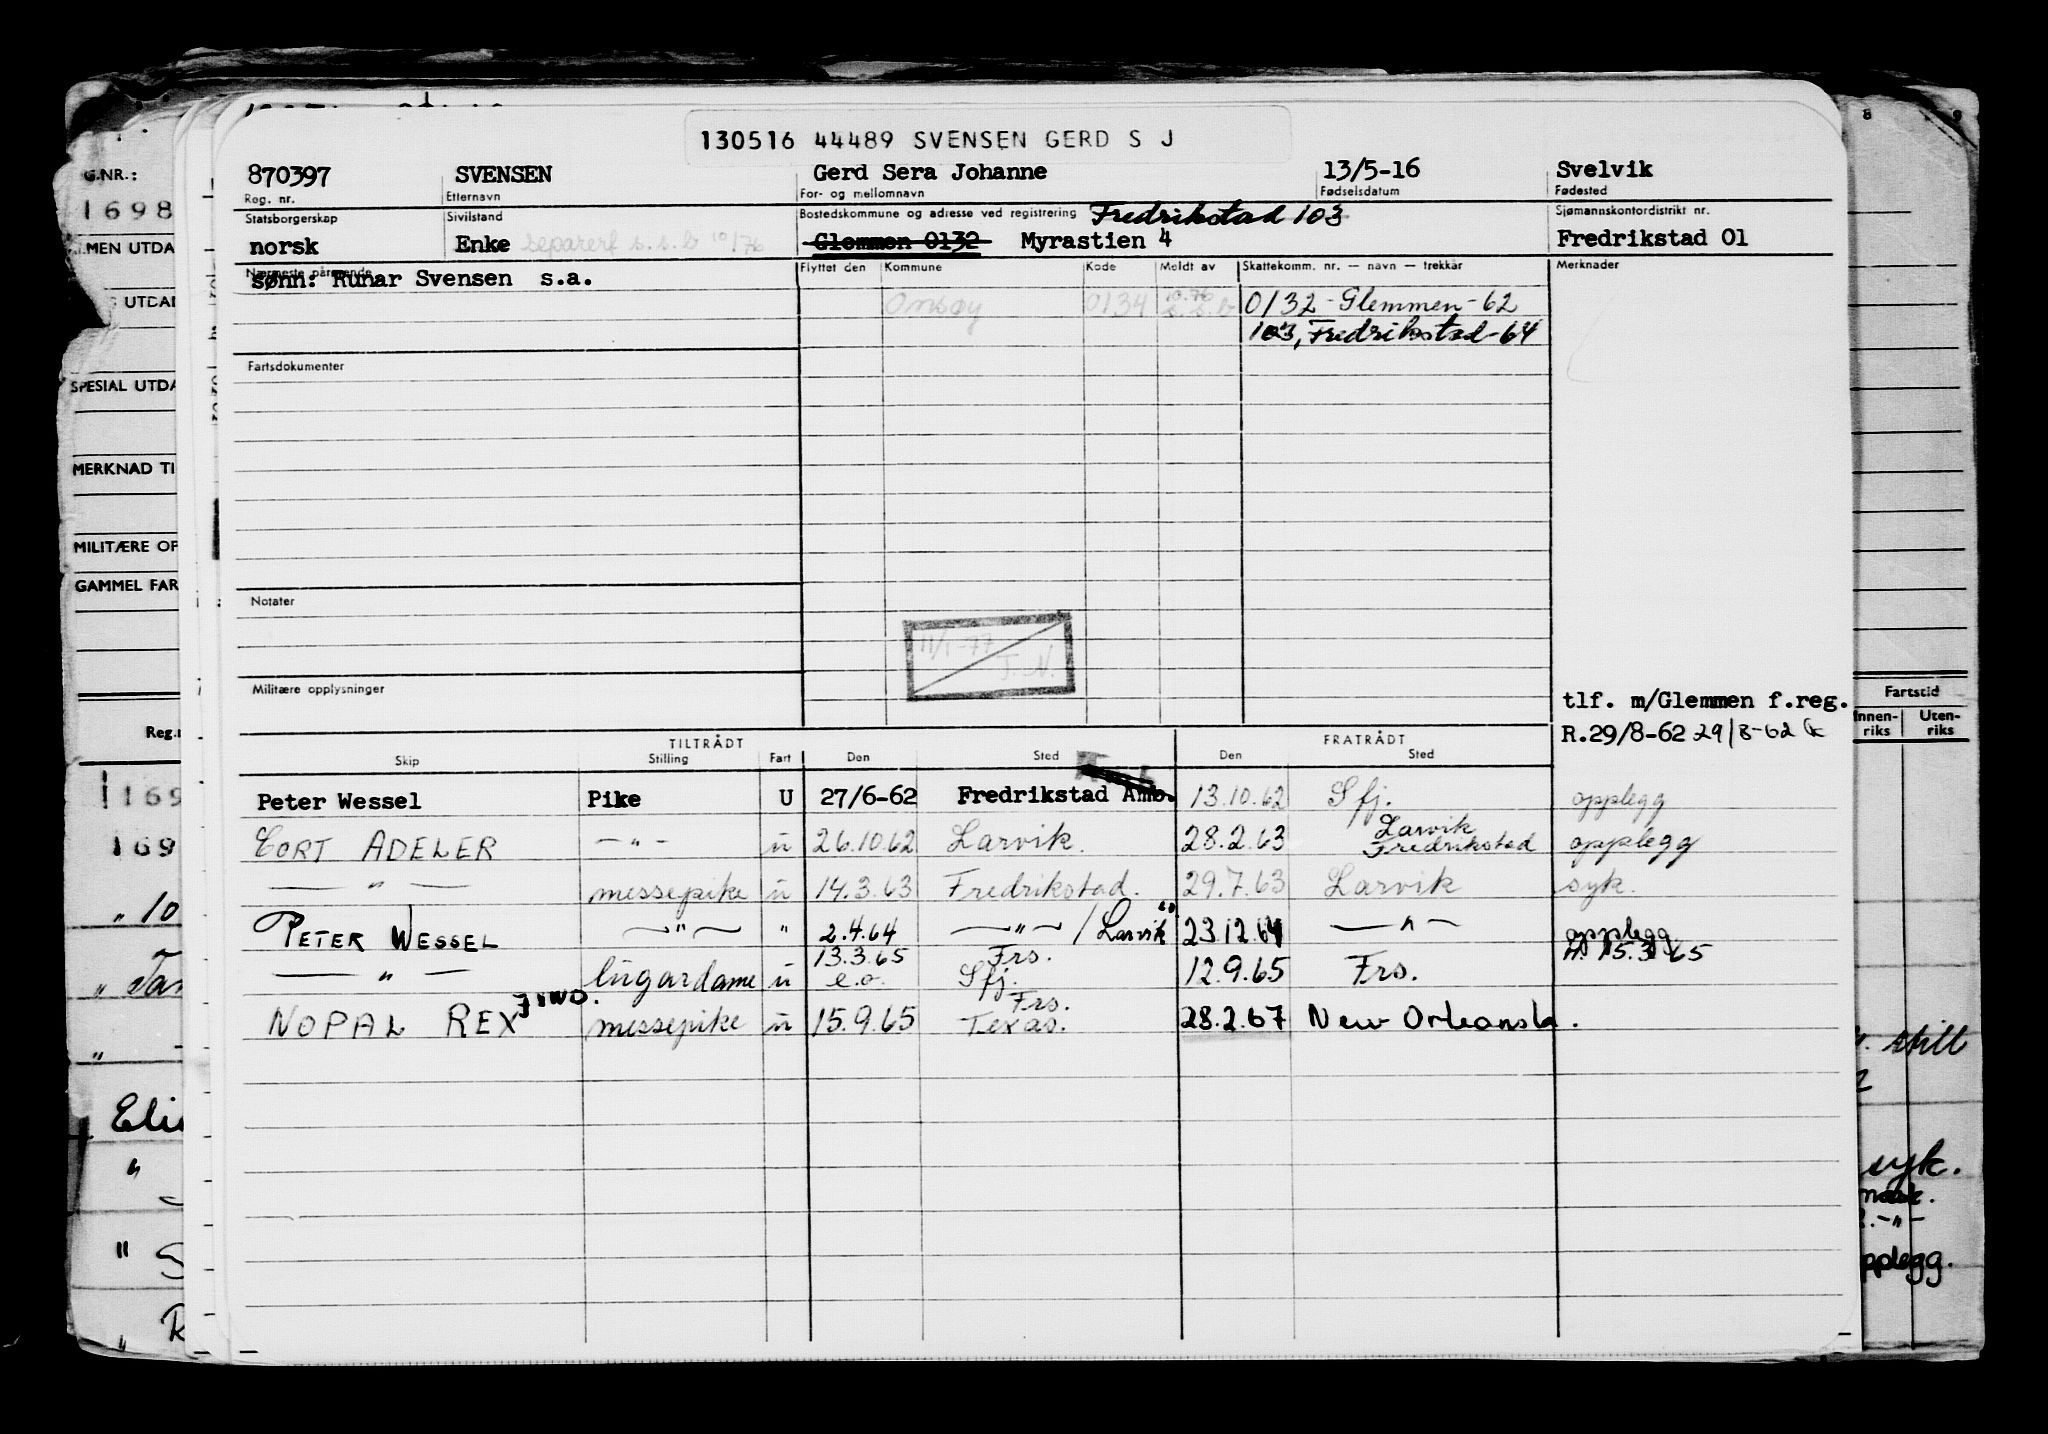 130516 44489 SVENSEN GERD S J
870397 SVENSEN Gerd Sera Johanne 13/5-16 Svelvik
Reg. nr. Etternavn For- og mellomnavn Fødselsdatum Fødested
Statsborgerskap Sivilstand Bostedskommune og adresse ved registrering Fredrikstad 103 Sjømannskontordistrikt nr.
norsk Enke separert s.s.b 10/76 Glommen 0132 Myrastien 4 Fredrikstad 01
Nærmeste pårørende Flyttet den Kommune Kode Meldt av Skattekomm. nr. — navn — trekkår Merknader
sønn: Runar Svensen s.a.
Onsøy 0134 10.76 s.s.b 0132 - Glemmen - 62
103, Fredrikstad - 64
Fartsdokumenter
Notater
11/1-77 T.N.
Militære opplysninger
tlf. m/Glemmen f.reg.
R.29/8-62 29/8-62
TILTRÅDT FRATRÅDT
Skip Stilling Fart Den Sted Den Sted
Peter Wessel Pike U 27/6-62 Fredrikstad Amb. 13.10.62 Sfj. opplegg
CORT ADELER — " — u 26.10.62 Larvik. 28.2.63 Larvik Fredrikstad opplegg
— " — messepike u 14.3.63 Fredrikstad. 29.7.63 Larvik syk.
PETER WESSEL — " — " 2.4.64 — " — / Larvik 23.12.64 — " — opplegg
— " — lugardame u 13.3.65 e.o. Frs. Sfj. 12.9.65 Frs. 15.3.65
NOPAL REX messepike u 15.9.65 Frs. Texas. 28.2.67 New Orleans
G.NR.:
1698
SPESIAL UTDA
MERKNAD TI
MILITÆRE OP
GAMMEL FAR
Reg.
169
169
" 10
Fartstid
Innen-riks Uten-riks
8 9
still
syk.